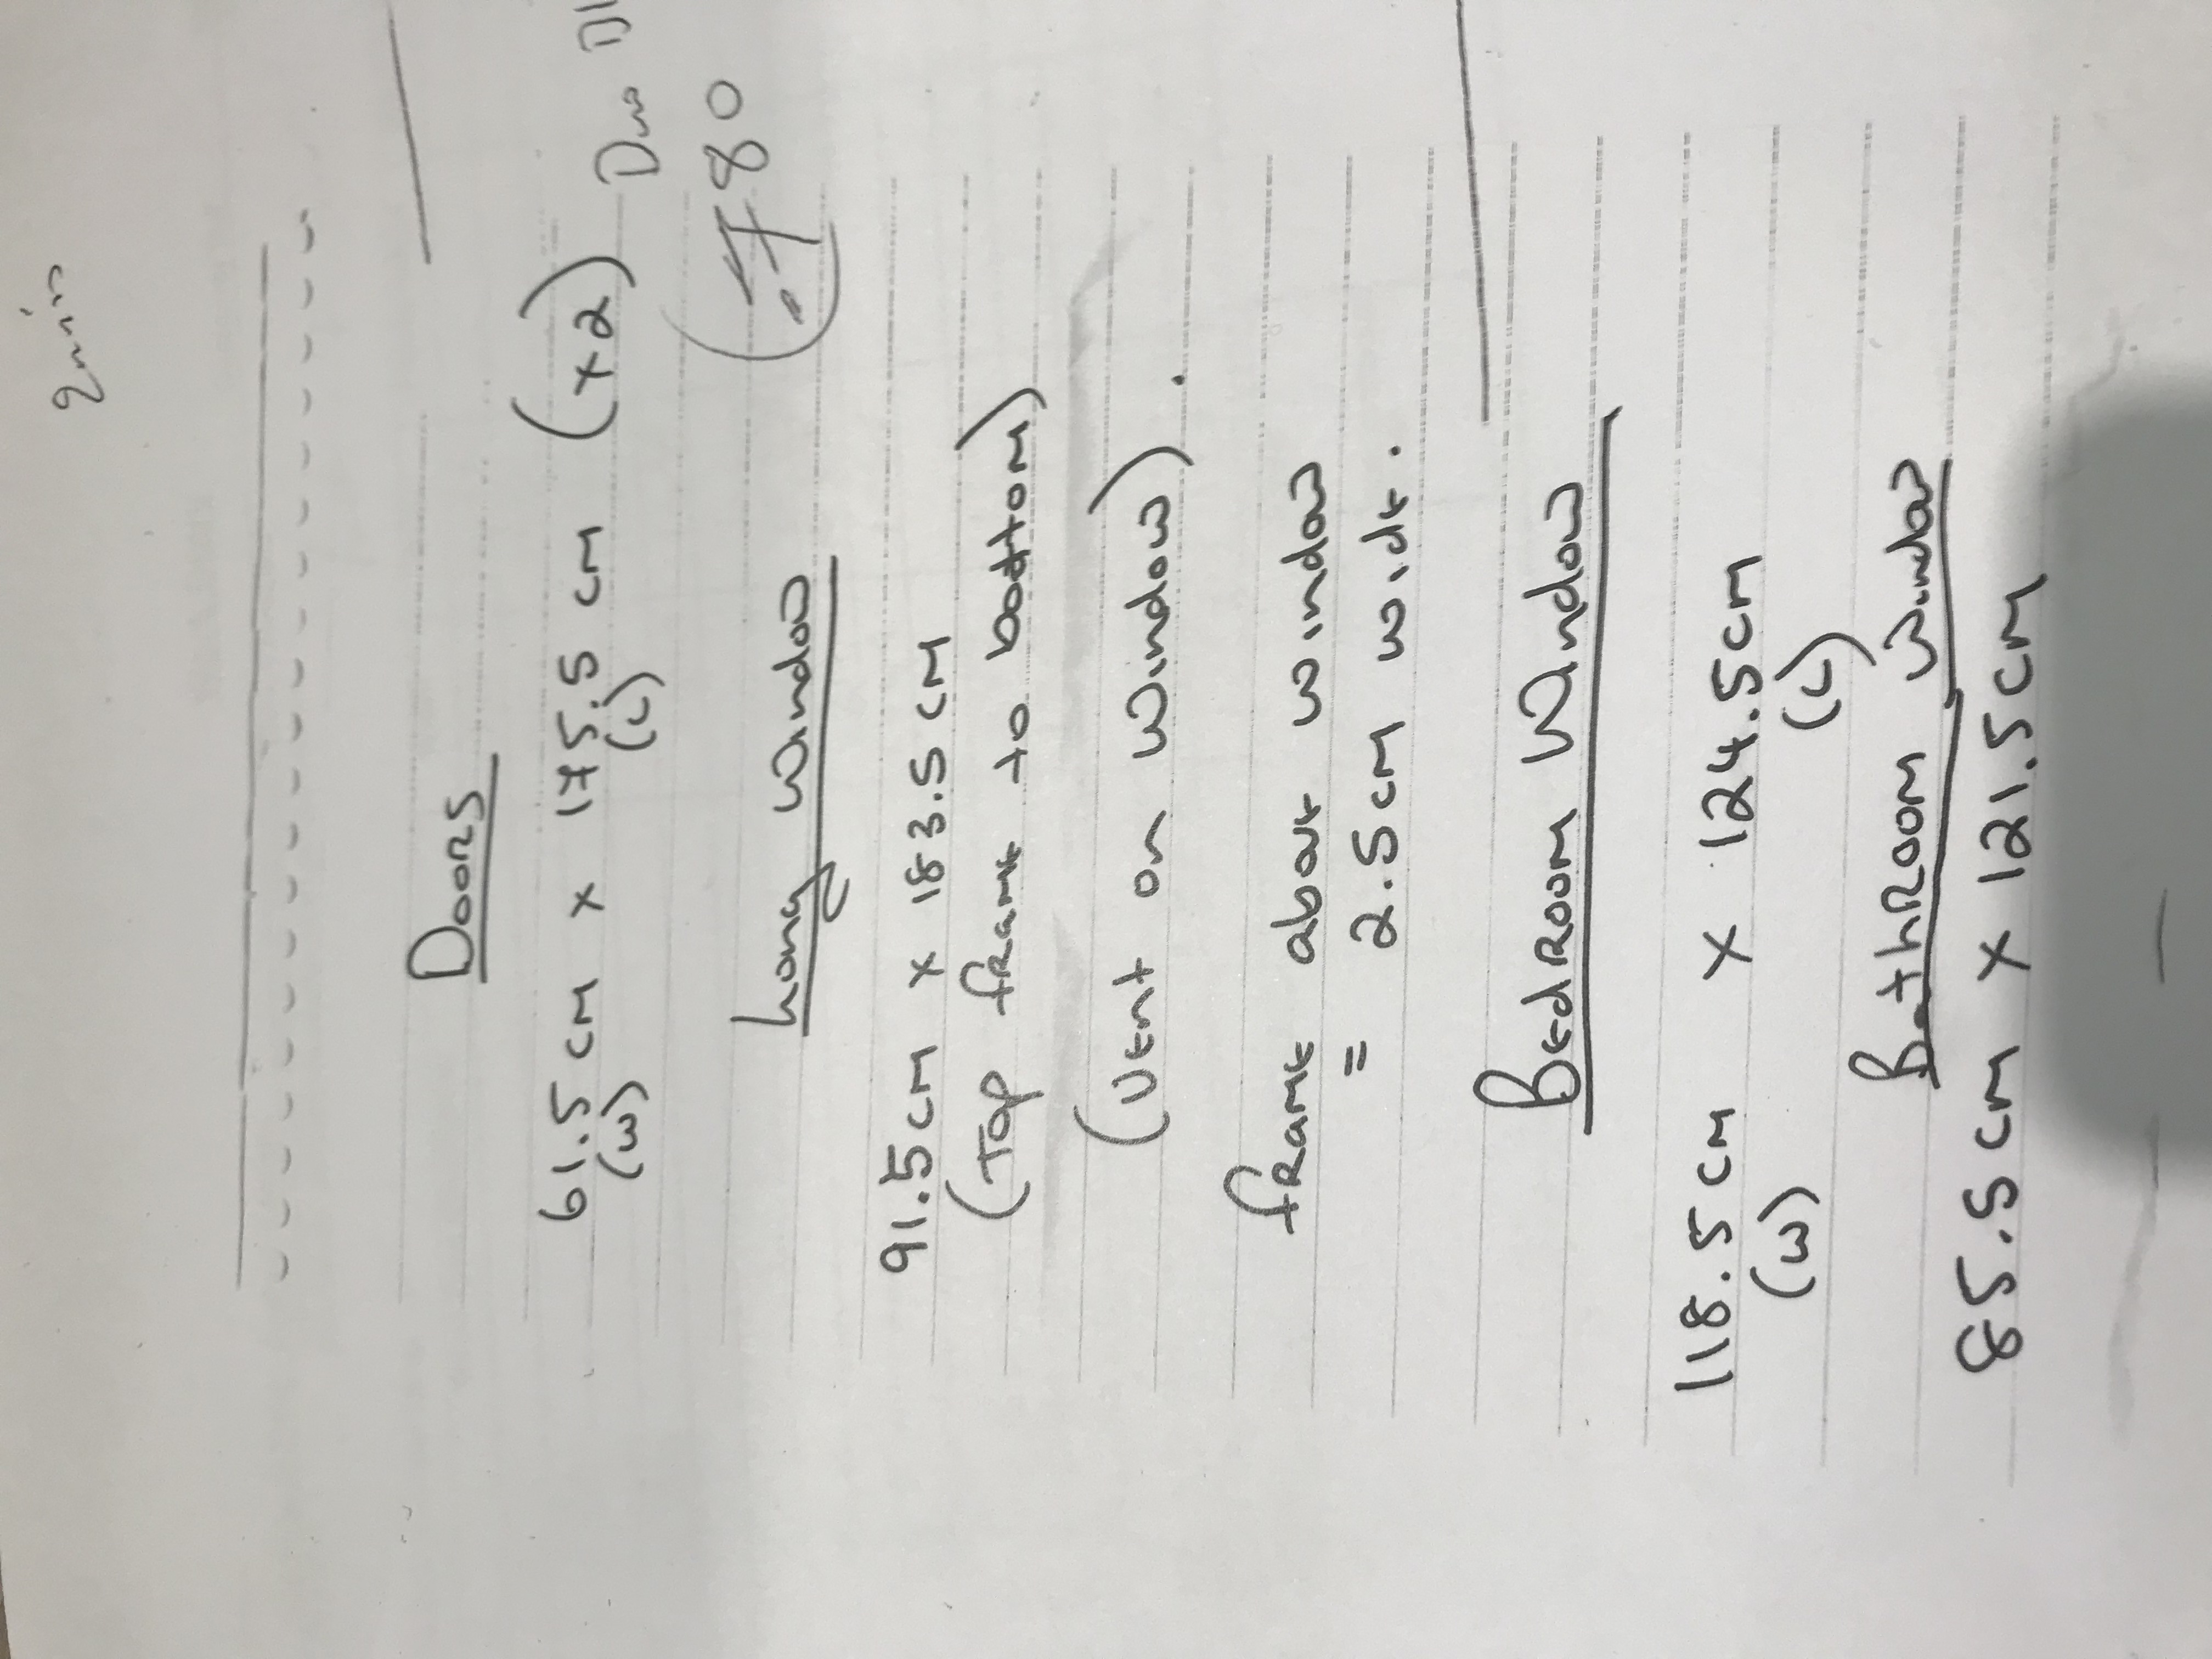 Doors
61.5cm x 175.5cm (x2)
(w) (L)
Long window
91.5cm x 183.5cm
(Top frame to bottom)
(Vent on window).
frame above window
= 2.5cm wide.
Bedroom Window
118.5cm x 124.5cm
(w) (L)
Bathroom window
85.5cm x 121.5cm